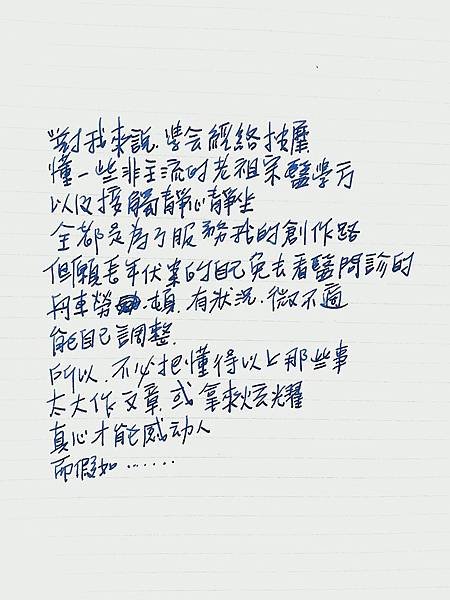 對我來說,學会經絡按摩
懂一些非主流的老祖宗醫學方
以及接觸靜心靜坐
全都是為了服務我的創作路
但願長年伏案的自己免去看醫問診的
舟車勞頓.有狀況.微不適
能自己調整.
所以.不必把懂得以上那些事
太大作文章.或拿來炫耀
真心才能感动人
而假如......